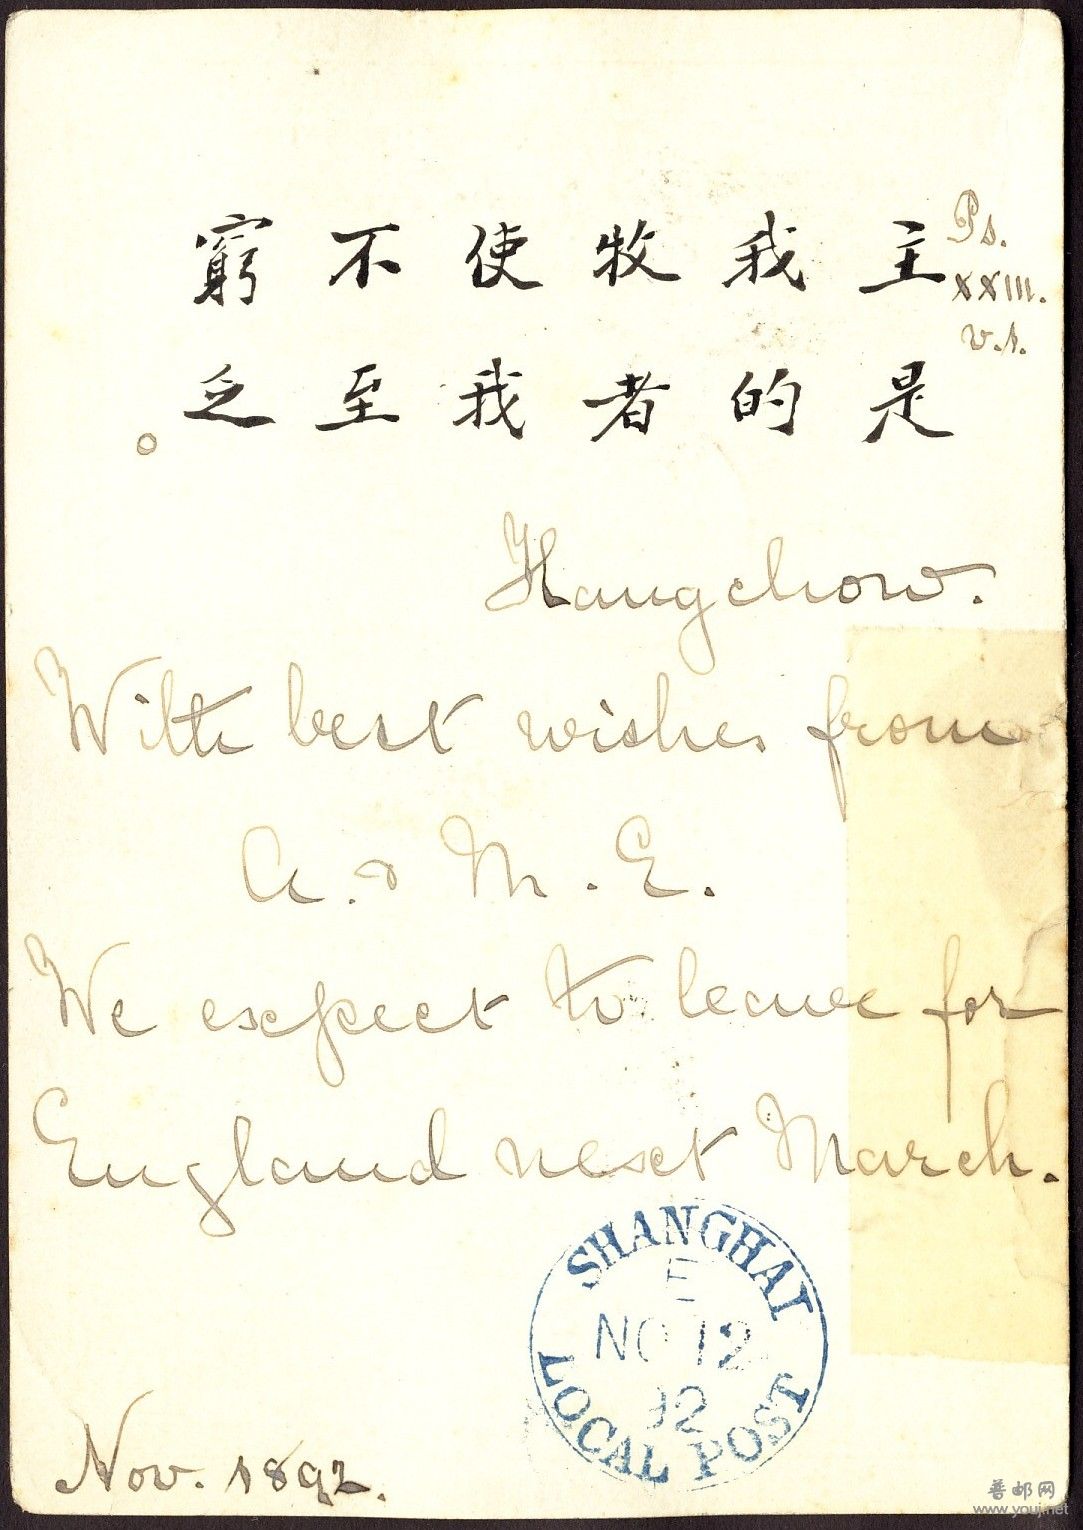 主是
我的
牧者
使我
不至
窮乏。
Ps.
XXIII.
v.1.
Hangchow.
With best wishes from
A. & M. E.
We expect to leave for
England next March.
SHANGHAI
E
NO 12
92
LOCAL POST
Nov. 1892.
普邮网
www.youj.net